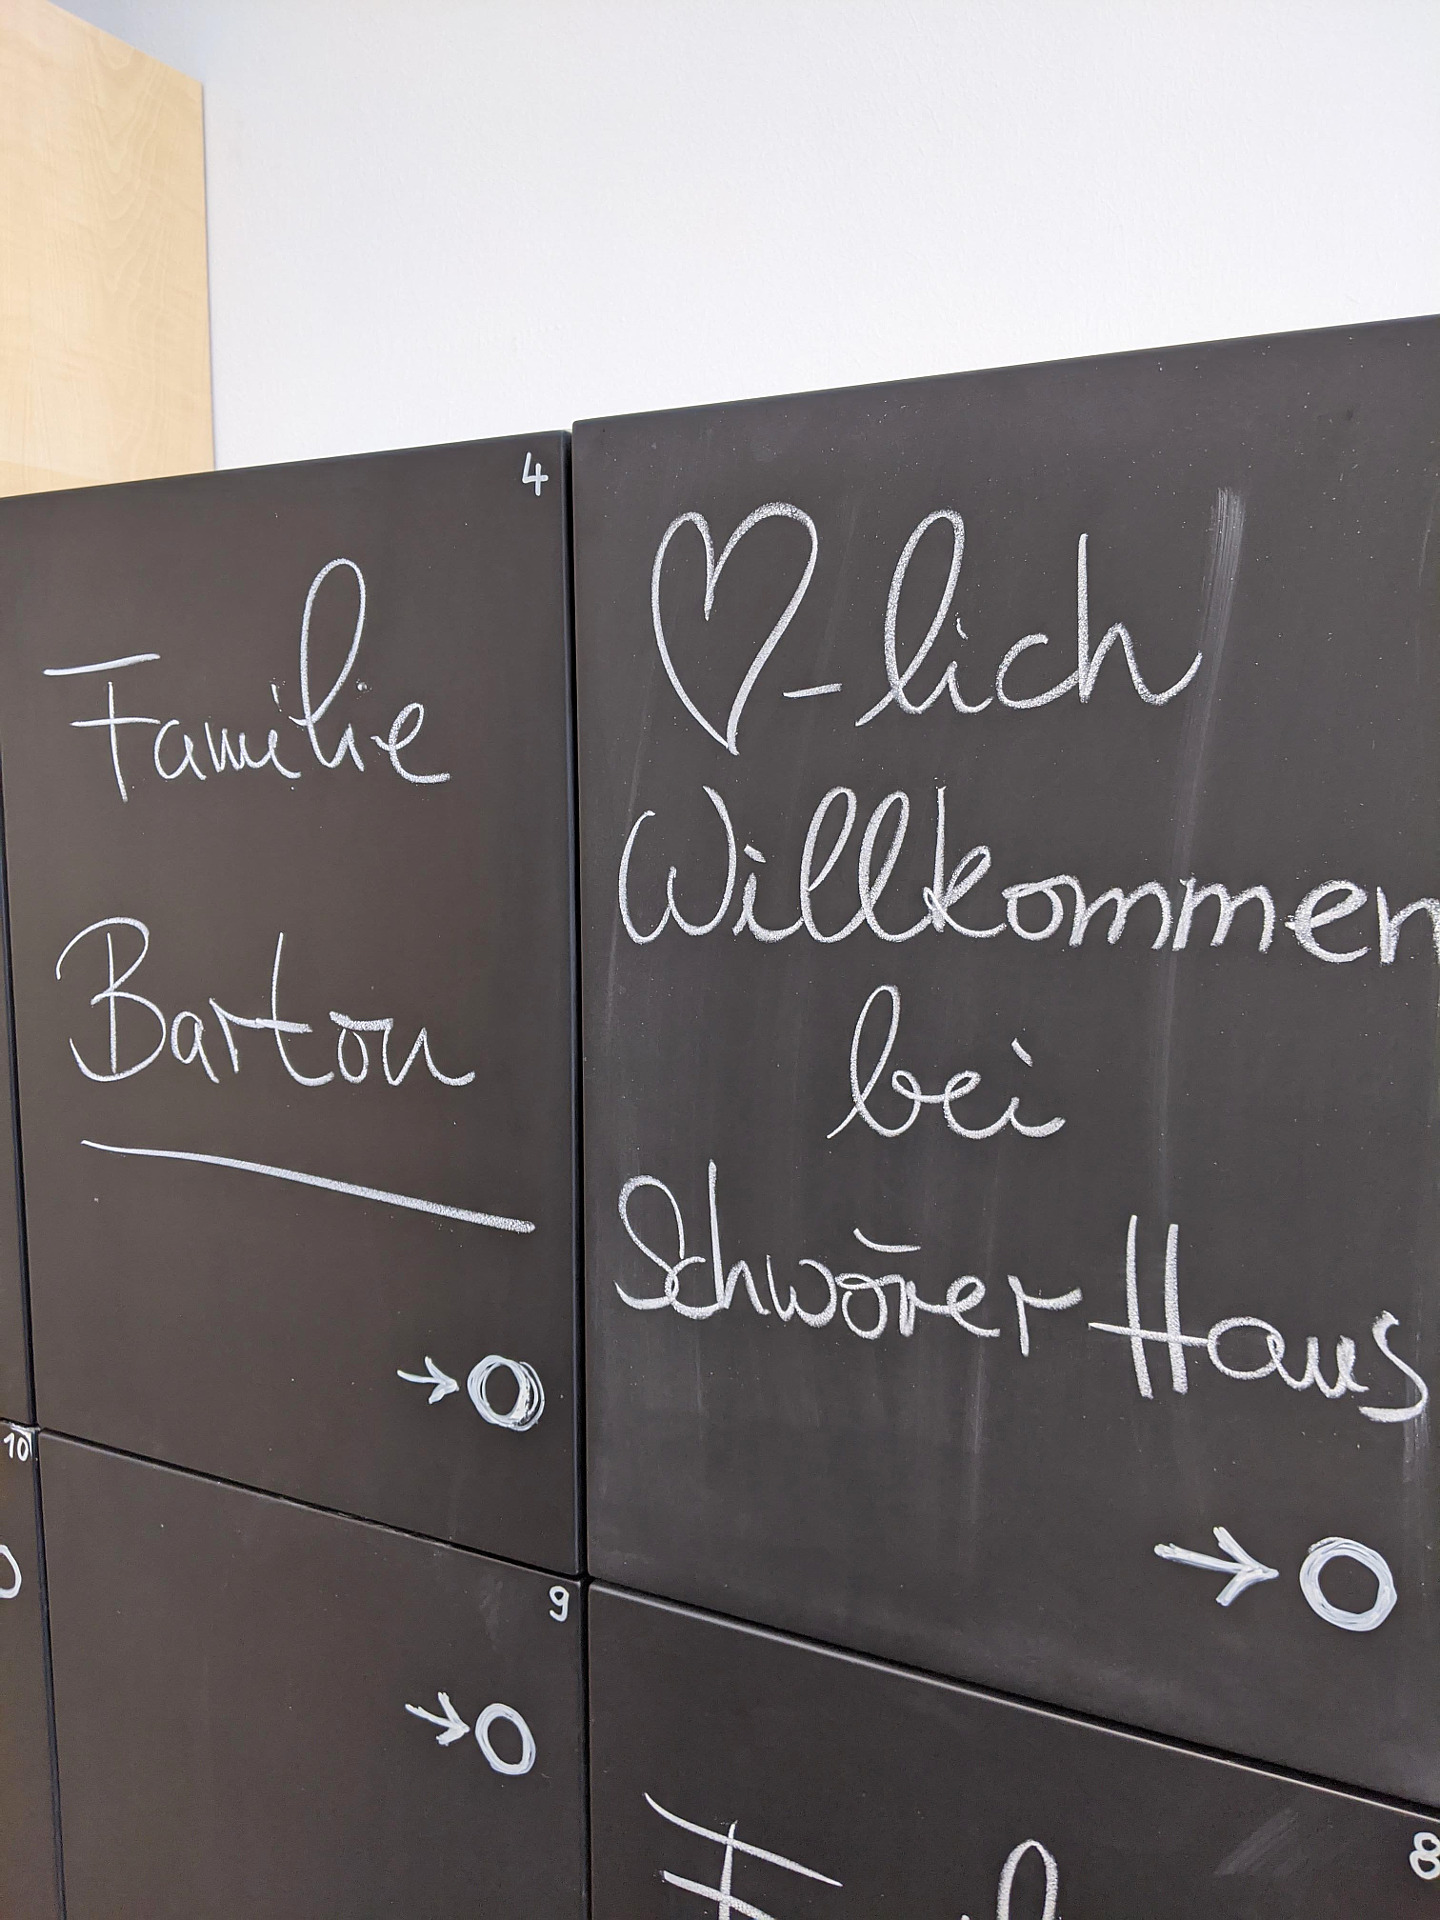 4
Familie
Barton
♡-lich
Willkommen
bei
SchwörerHaus
10
9
8